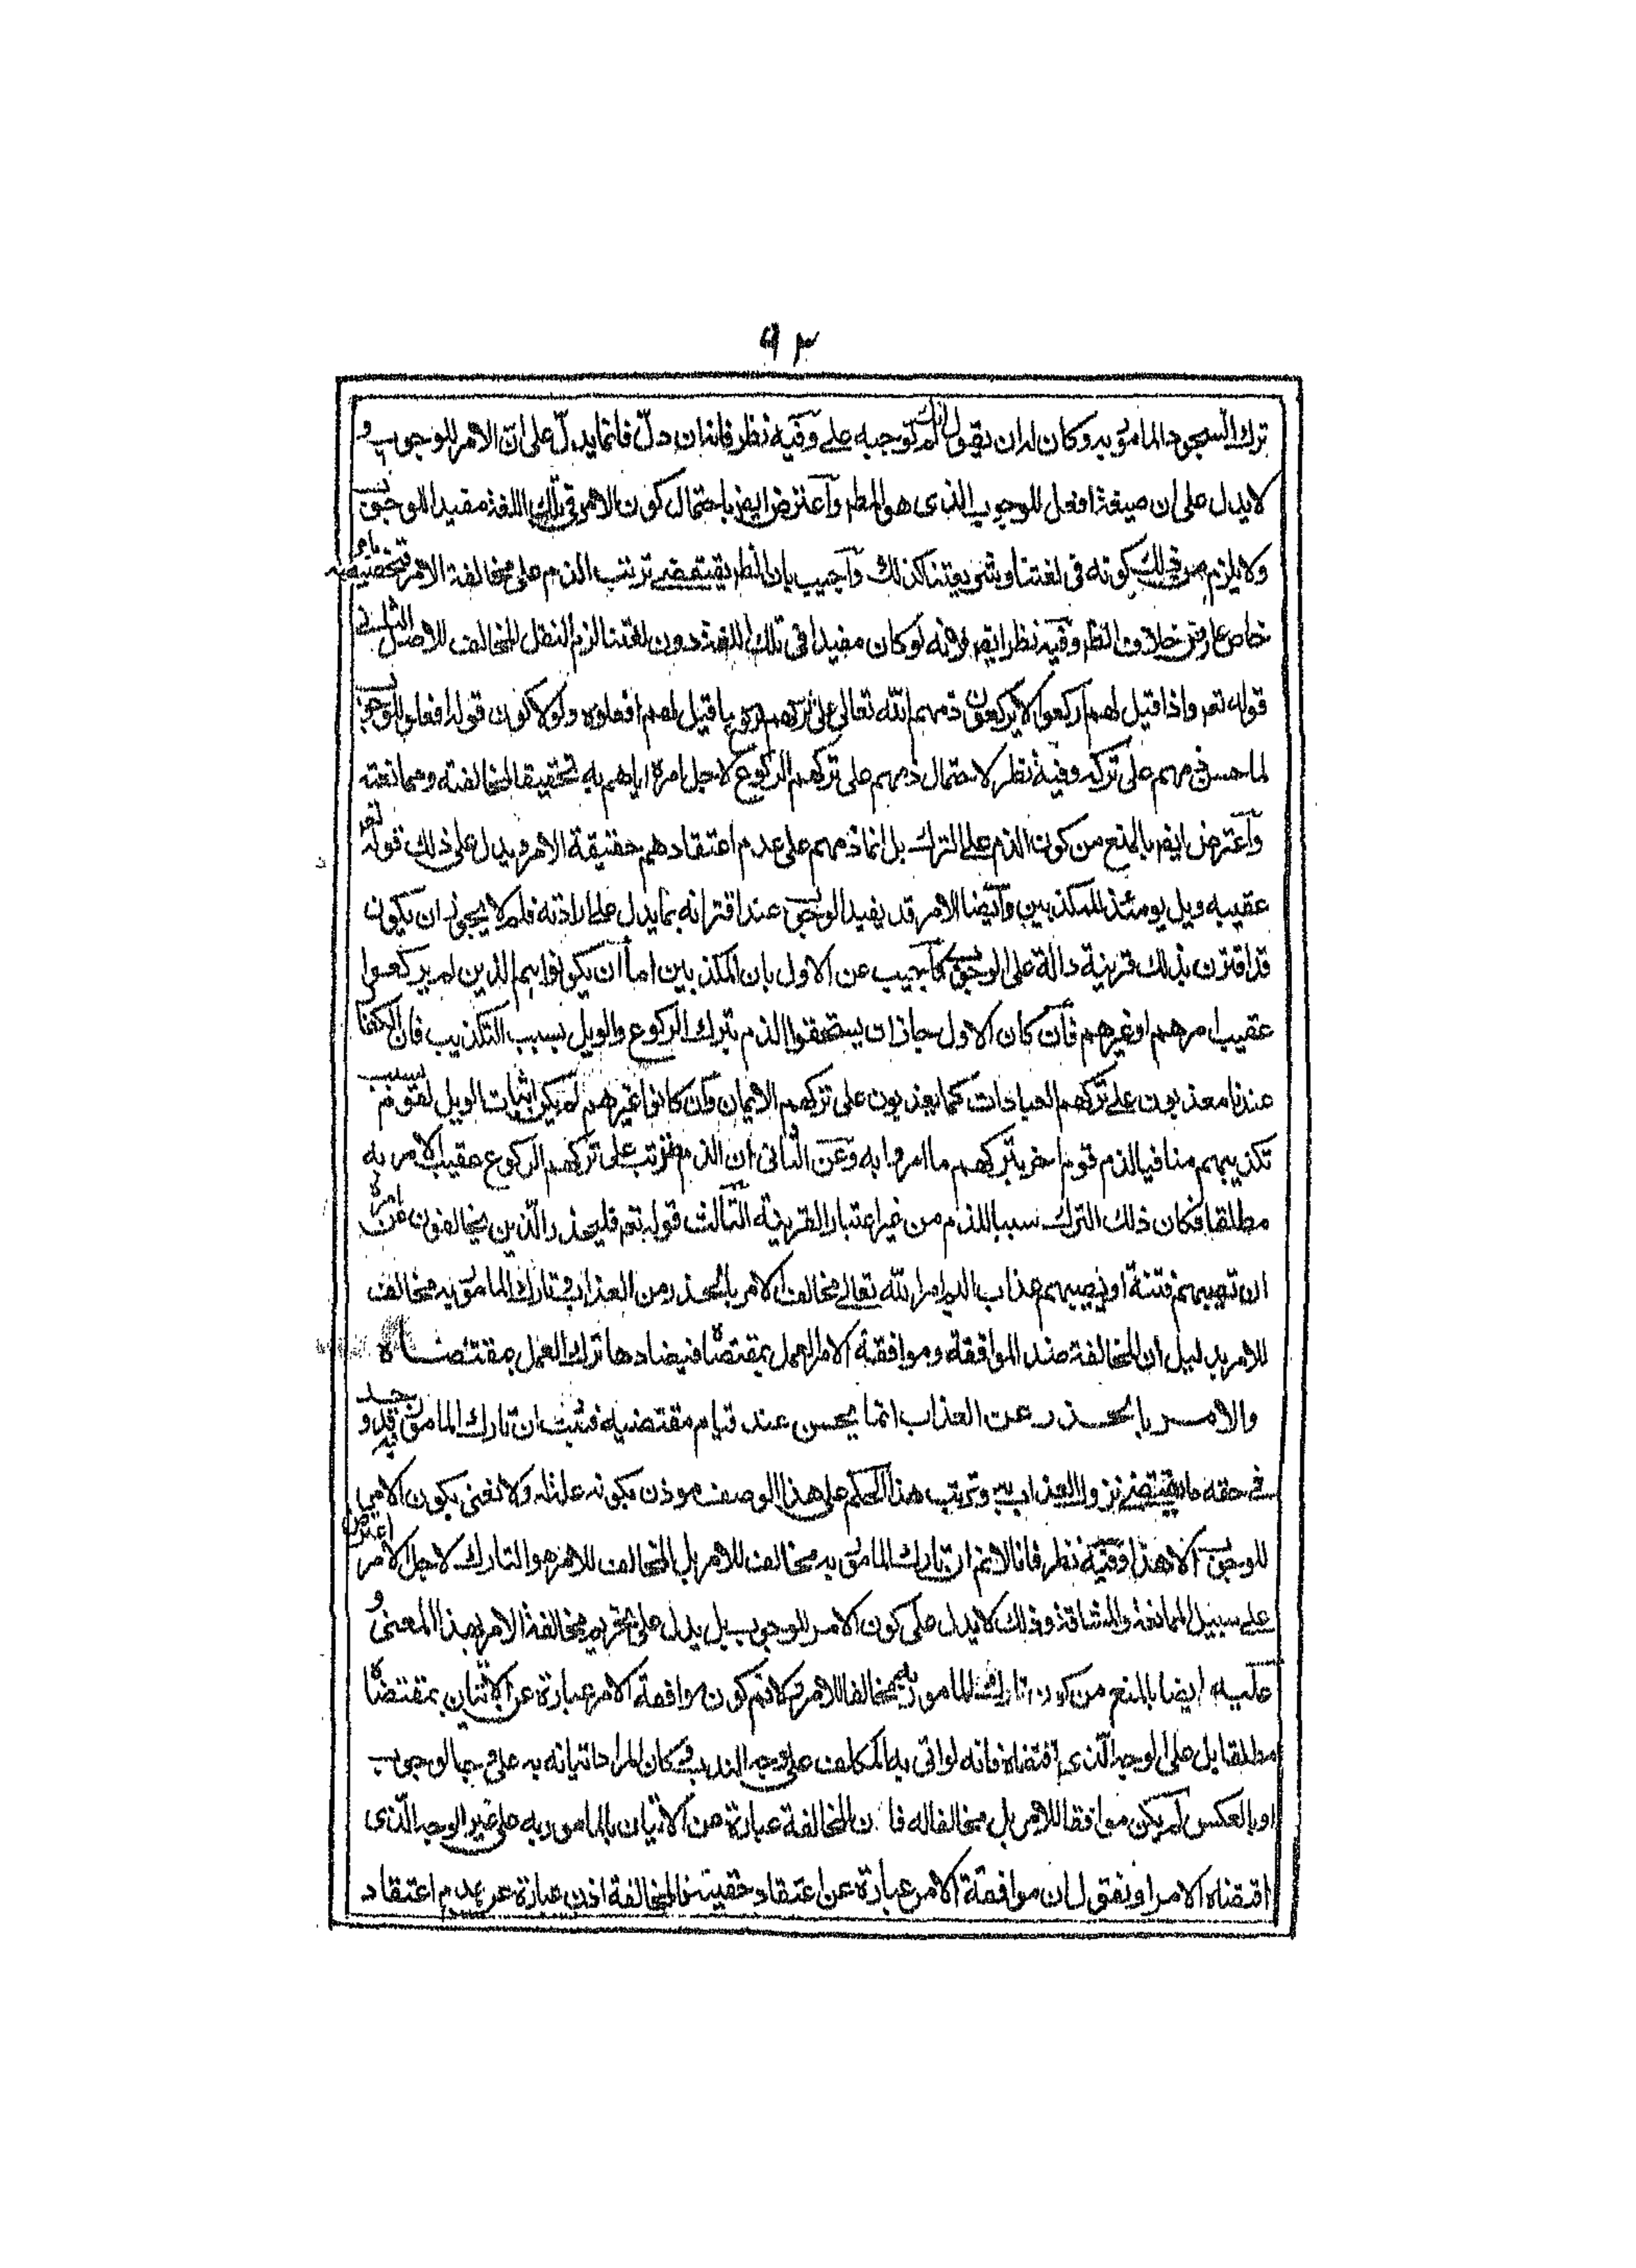 ٩٢
ترك السجود المامور به وكان له ان يقول انك لم توجبه علي وفيه نظر فانه ان دل فانما يدل على ان الامر للوجوب و
لا يدل على ان صيغة افعل للوجوب الذى هو المط واعترض ايض باحتمال كون الامر في تلك اللغة مفيدا للوجوب
ولا يلزم من ذلك كونه فى لغتنا وشريعتنا كذلك واجيب بان الظ يقتضي ترتب الذم على مخالفة الامر فتخصيصه بامر
خاص على خلاف الظ وفيه نظر ايض فانه لو كان مفيدا فى تلك اللغة دون لغتنا لزم النقل المخالف للاصل الثاني
قوله تعم واذا قيل لهم اركعوا لا يركعون ذمهم الله تعالى على تركهم الركوع ما قيل لهم افعلوه ولولا كون قوله افعلوا للوجوب
لما حسن ذمهم على تركه وفيه نظر لاحتمال ذمهم على تركهم الركوع لاجل امره اياهم به تحقيقا لمخالفته وممانعته
واعترض ايض بالمنع من كون الذم على الترك بل انما ذمهم على عدم اعتقادهم حقيقة الامر ويدل على ذلك قوله تعم
عقيبه ويل يومئذ للمكذبين وايضا الامر قد يفيد الوجوب عند اقترانه بما يدل على ارادته فلم لا يجوز ان يكون
قد اقترن بذلك قرينة دالة على الوجوب واجيب عن الاول بان المكذبين اما ان يكونوا هم الذين لم يركعوا
عقيب امرهم او غيرهم فان كان الاول جاز ان يستحقوا الذم بترك الركوع والويل بسبب التكذيب فان الكفار
عندنا معذبون على تركهم العبادات كما يعذبون على تركهم الايمان وان كانوا غيرهم لم يكن اثبات الويل لقوم بسبب
تكذيبهم منافيا لذم قوم اخر بتركهم ما امروا به وعن الثانى ان الذم مترتب على تركهم الركوع عقيب الامر به
مطلقا فكان ذلك الترك سببا للذم من غير اعتبار القرينة الثالث قوله تعم فليحذر الذين يخالفون عن امره
ان تصيبهم فتنة او يصيبهم عذاب اليم امر الله تعالى مخالف الامر بالحذر من العذاب وتارك المامور به مخالف
للامر بدليل ان المخالفة ضد الموافقة وموافقة الامر العمل بمقتضاه فيضادها ترك العمل بمقتضاه
والامر بالحذر عن العذاب انما يحسن عند قيام مقتضيه فثبت ان تارك المامور به قد وجد
في حقه ما يقتضي نزول العذاب به وترتب هذا الحكم على هذا الوصف موذن بكونه علة له ولا نعنى بكون الامر
للوجوب الا هذا وفيه نظر فانا لا نم ان تارك المامور به مخالف للامر بل المخالف للامر هو التارك لاجل الامر
على سبيل الممانعة والمشاقة وذلك لا يدل على كون الامر للوجوب بل يدل على تحريم مخالفة الامر بهذا المعنى واعترض
عليه ايضا بالمنع من كون تارك المامور به مخالفا للامر ولا نم كون موافقة الامر عبارة عن الاتيان بمقتضاه
مطلقا بل على الوجه الذى اقتضاه فانه لو اتى به المكلف على وجه الندب وكان المراد اتيانه به على وجه الوجوب
او بالعكس لم يكن موافقا للامر بل مخالفا له فان المخالفة عبارة عن الاتيان بالمامور به على غير الوجه الذى
اقتضاه الامر او نقول ان موافقة الامر عبارة عن اعتقاد حقيته فالمخالفة اذن عبارة عن عدم اعتقاد